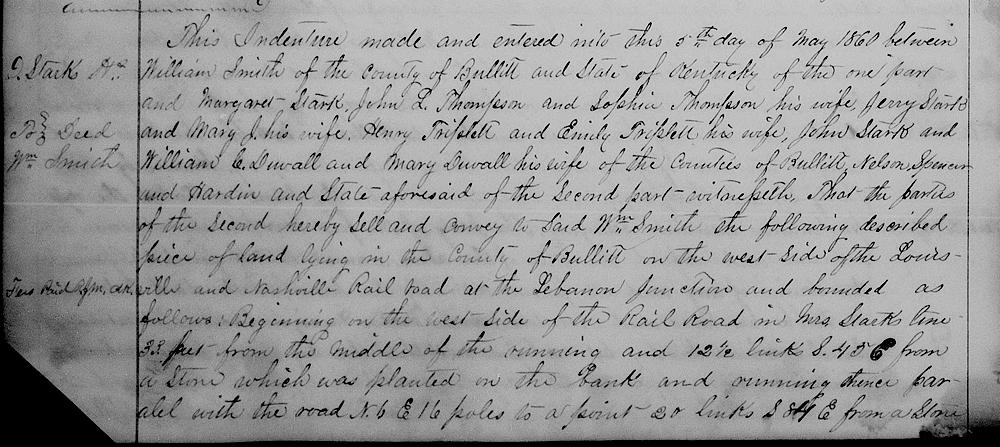 This Indenture made and entered into this 5th day of May 1860 between
J. Stark &c
William Smith of the County of Bullitt and State of Kentucky of the one part
and Margaret Stark, John L. Thompson and Sophia Thompson his wife, Jerry Stark
To } Deed
and Mary J. his wife, Henry Triplett and Emily Triplett his wife, John Stark and
Wm Smith
William C. Duvall and Mary Duvall his wife of the Counties of Bullitt, Nelson, Spencer
and Hardin and State aforesaid of the Second part witnesseth, That the parties
of the Second hereby Sell and Convey to Said Wm Smith the following described
piece of land lying in the County of Bullitt on the west Side of the Louis-
Fees Paid
ville and Nashville Rail road at the Lebanon Junction and bounded as
follows: Beginning on the west Side of the Rail Road in Mrs Stark line
33 feet from the middle of the running and 12½ links S. 45 E from
a Stone which was planted on the Bank and running thence par-
alel with the road N. 6 E 16 poles to a point 20 links S 84 E from a Stone